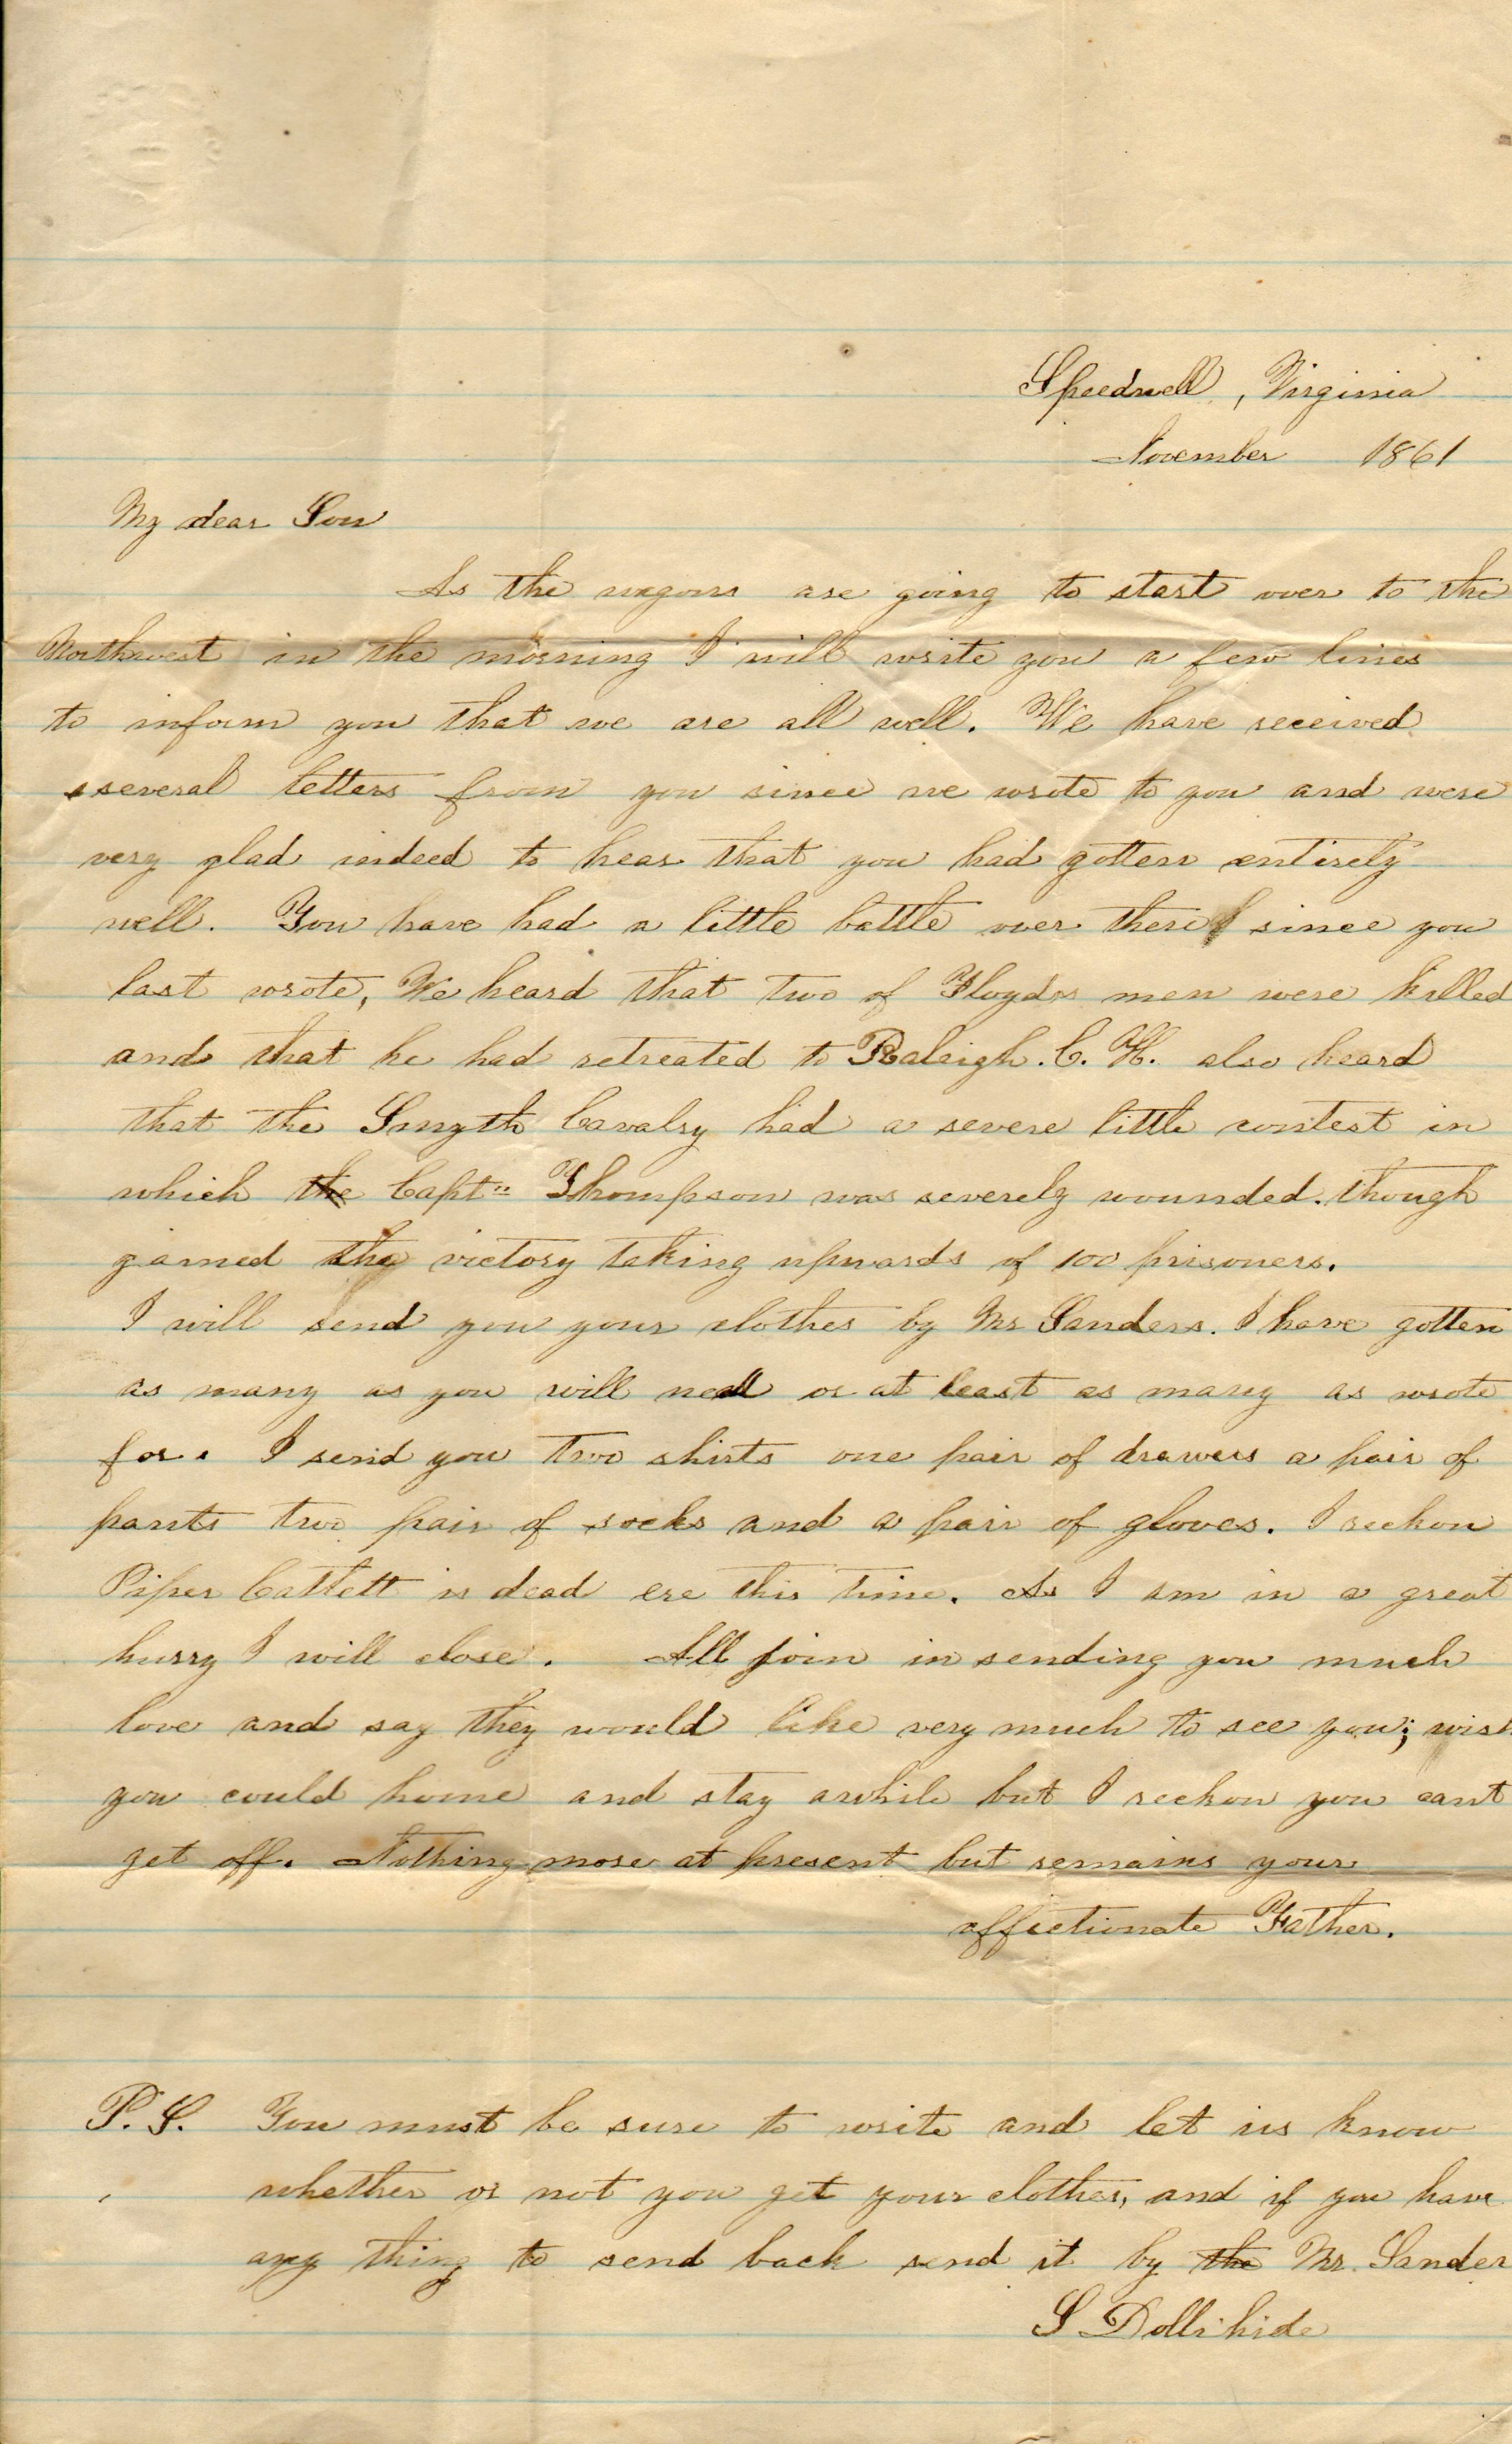 Speedwell, Virginia
November 1861
My dear Son
As the wagons are going to start over to the
Northwest in the morning I will write you a few lines
to inform you that we are all well. We have received
several letters from you since we wrote to you and were
very glad indeed to hear that you had gotten entirely
well. You have had a little battle over there since you
last wrote, We heard that two of Floyds men were killed
and that he had retreated to Raleigh. C. H. also heard
that the Smyth Cavalry had a severe little contest in
which the Captn Thompson was severely wounded. though
gained the victory taking upwards of 100 prisoners.
I will send you your clothes by Mr Sanders. I have gotten
as many as you will need or at least as many as wrote
for. I send you two shirts one pair of drawers a pair of
pants two pair of socks and a pair of gloves. I reckon
Piper Catlett is dead ere this time. As I am in a great
hurry I will close. All join in sending you much
love and say they would like very much to see you; wish
you could home and stay awhile but I reckon you cant
get off. Nothing more at present but remains your
affectionate Father.
P. S. You must be sure to write and let us know
whether or not you get your clothes, and if you have
any thing to send back send it by the Mr. Sander
S Dollihide